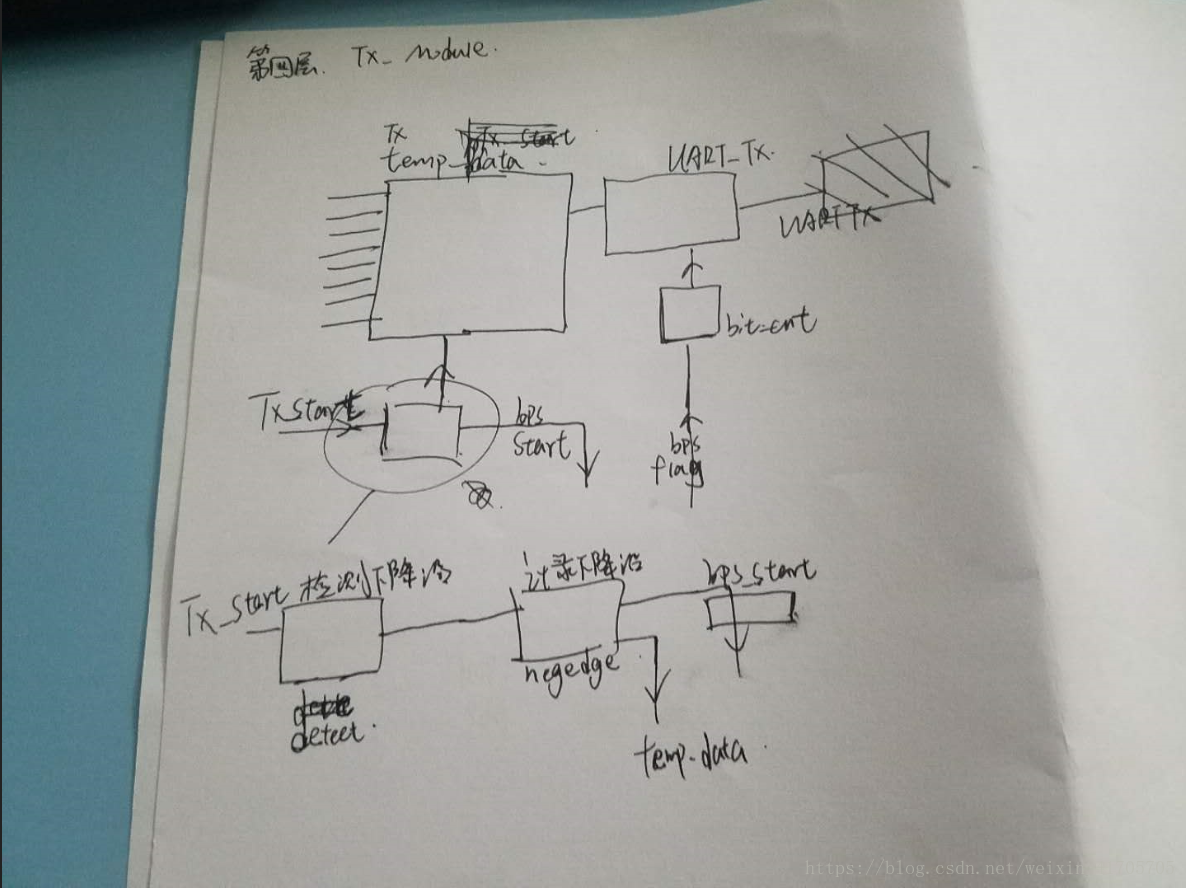 第四层. Tx_ Module.
Tx
temp_data.
UART_Tx.
UART TX
bit_cnt
Tx start
bps
start
bps
flag
Tx_start 检测下降沿
记录下降沿
bps_start
negedge
detect.
temp_data.
https://blog.csdn.net/weixin